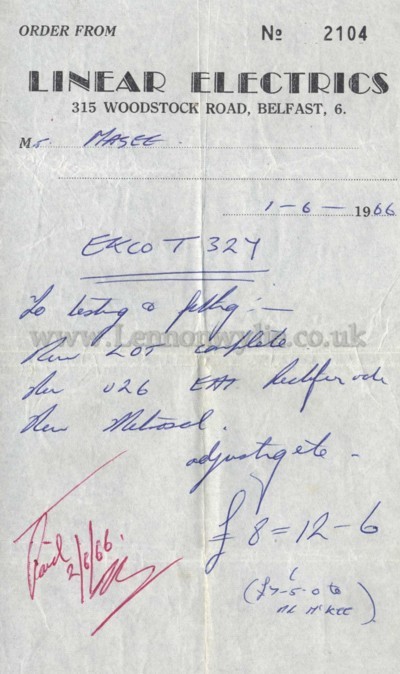 ORDER FROM № 2104
LINEAR ELECTRICS
315 WOODSTOCK ROAD, BELFAST, 6.
Mr. MAGEE.
1-6-1966
EKCO T 327
To testing & fitting:—
www.Lennonwylie.co.uk
New LOT complete
New U26 EHT Rectifier valve
New Metrosil.
adjusting etc -
£8=12-6
(£7-5-0 to
Mc KEE)
Paid
2/6/66.